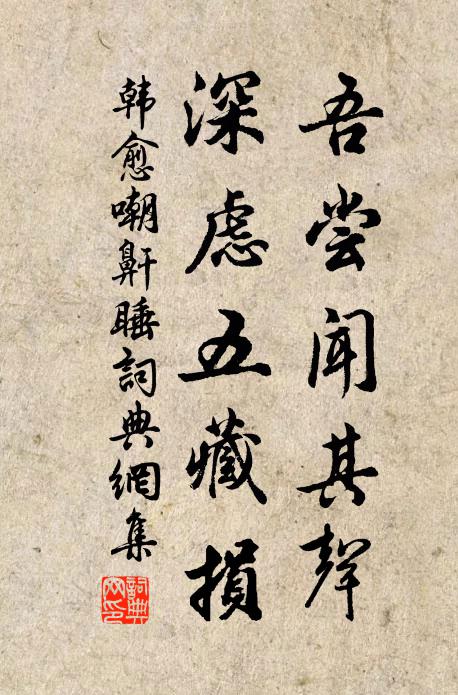 吾尝闻其声
深虑五藏损
韩愈嘲鼾睡詞典網集
詞典網印